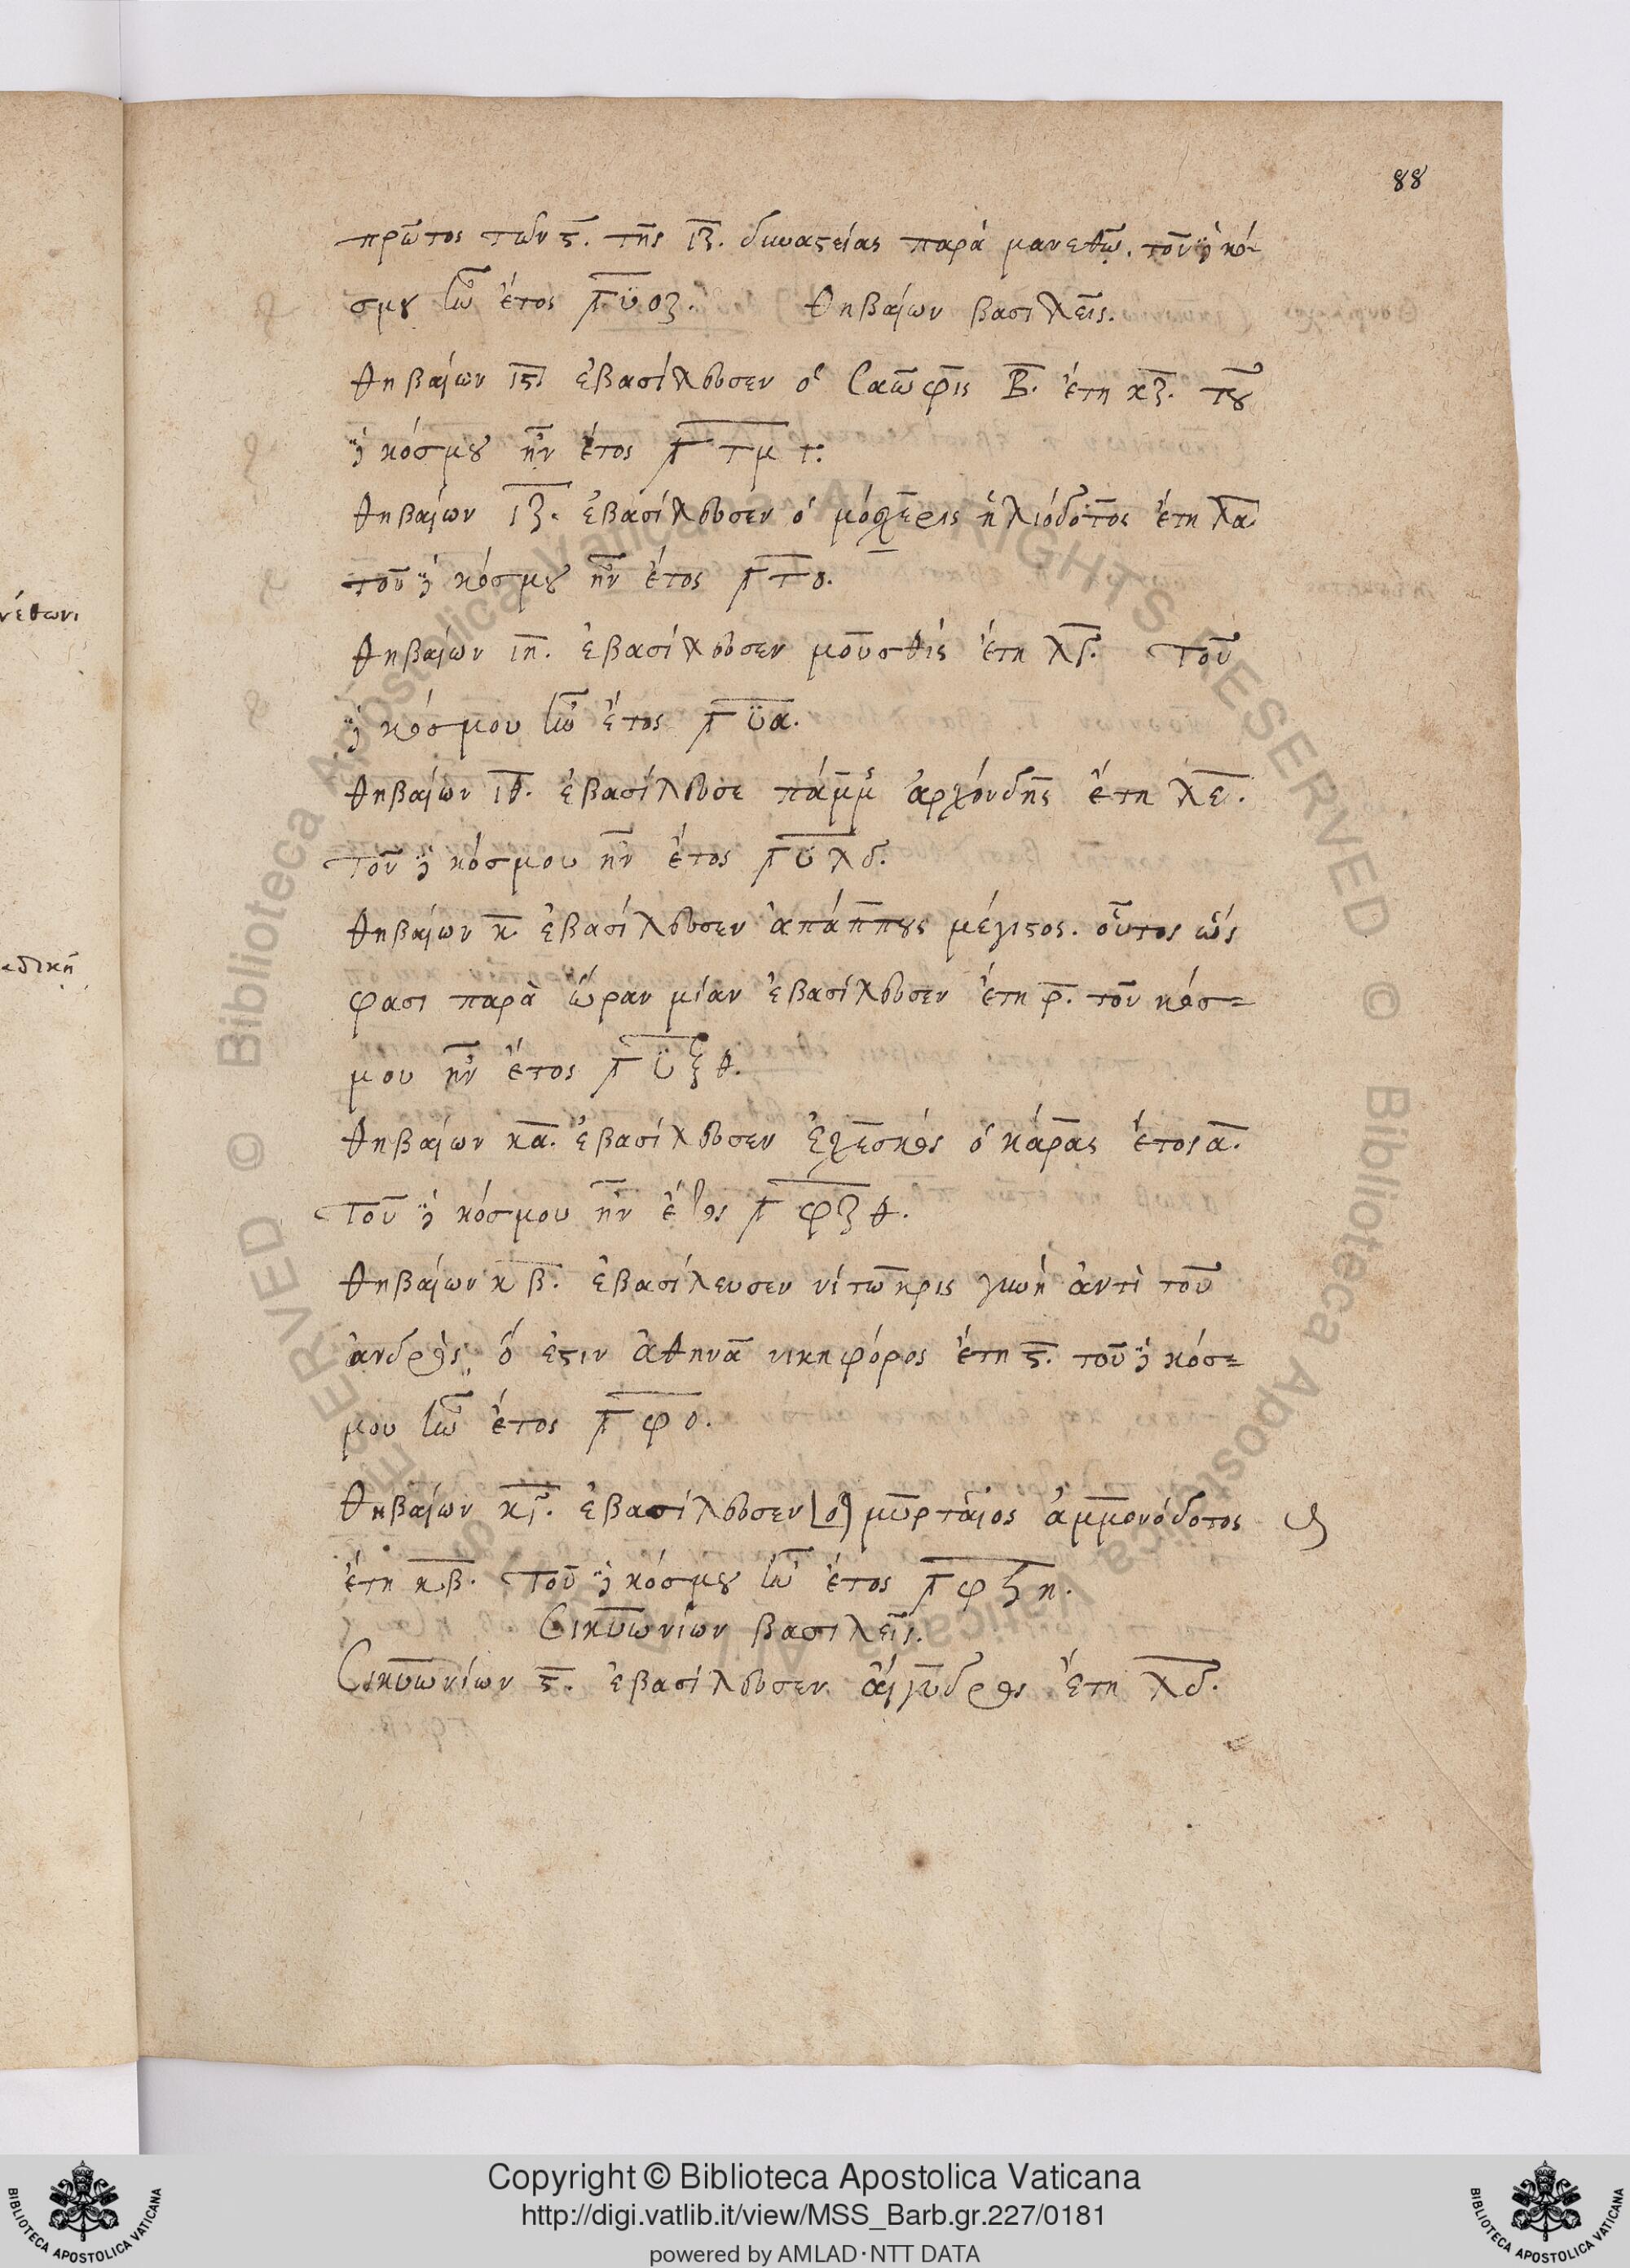 88
πρῶτος τῶν ϛ. τῆς ιζ. δυναστείας παρὰ μανεθῶ. τοῦ δὲ κό-
σμου ἦν ἔτος ͵γυοζ. θηβαίων βασιλεῖς.
θηβαίων ιϛ ἐβασίλευσεν ὁ Σαῶφις Β. ἔτη κζ. τοῦ
δὲ κόσμου ἦν ἔτος ͵γτμγ.
θηβαίων ιζ. ἐβασίλευσεν ὁ μόσχερις ἡλιόδοτος ἔτη λα.
τοῦ δὲ κόσμου ἦν ἔτος ͵γτο.
θηβαίων ιη. ἐβασίλευσεν μοῦσθις ἔτη λγ. τοῦ
δὲ κόσμου ἦν ἔτος ͵γυα.
θηβαίων ιθ. ἐβασίλευσε πάμμς ἀρχόνδης ἔτη λε.
τοῦ δὲ κόσμου ἦν ἔτος ͵γυλδ.
θηβαίων κ. ἐβασίλευσεν ἀπάππους μέγιστος. οὗτος ὥς
φασι παρὰ ὥραν μίαν ἐβασίλευσεν ἔτη ρ. τοῦ κόσ=
μου ἦν ἔτος ͵γυξθ.
θηβαίων κα. ἐβασίλευσεν ἐχεσκὸς ὁ κάρας ἔτος α.
τοῦ δὲ κόσμου ἦν ἔτος ͵γφξθ.
θηβαίων κβ. ἐβασίλευσεν νίτωκρις γυνὴ ἀντὶ τοῦ
ἀνδρὸς, ὅ ἐστιν ἀθηνᾶ νικηφόρος ἔτη ϛ. τοῦ δὲ κόσ=
μου ἦν ἔτος ͵γφο.
θηβαίων κγ. ἐβασίλευσεν [ὁ] μυρταῖος ἀμμονόδοτος
ἔτη κβ. τοῦ δὲ κόσμου ἦν ἔτος ͵γφξη.
Σικυωνίων βασιλεῖς.
Σικυωνίων ϛ. ἐβασίλευσεν αἴγυδρος ἔτη λδ.
νέθωνι
αδικῆ
© Biblioteca Apostolica Vaticana ALL RIGHTS RESERVED
Copyright © Biblioteca Apostolica Vaticana
http://digi.vatlib.it/view/MSS_Barb.gr.227/0181
powered by AMLAD·NTT DATA
BIBLIOTECA APOSTOLICA VATICANA
BIBLIOTECA APOSTOLICA VATICANA